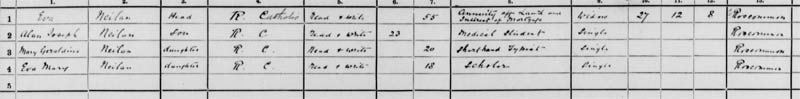 1. 2. 3. 4. 5. 6. 7. 8. 9. 10. 11. 12. 13.
1 Eva Neilan Head R. Catholic Read & write 55 Annuity off Lands and Interest of Mortgage Widow 27 12 8 Roscommon
2 Alan Joseph Neilan Son R. C. Read & write 23 Medical Student Single Roscommon
3 Mary Geraldine Neilan daughter R. C. Read & write 20 Shorthand Typist Single Roscommon
4 Eva Mary Neilan daughter R. C. Read & write 18 Scholar Single Roscommon
5